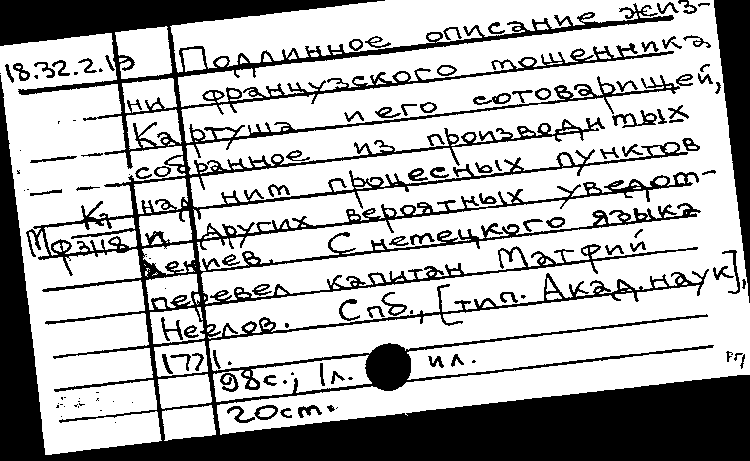 18.32.2.19 Подлинное описание жиз-
ни французского мошенника
Картуша и его сотоварищей,
собранное из производитых
над ним процесных пунктов
Кг
М ФЗ118 и других вероятных уведот-
лениев. С немецкого языка
перевел капитан Матфий
Неелов. Спб., [тип. Акад. наук],
1771.
98с.; 1л. ил. РП
20ст.